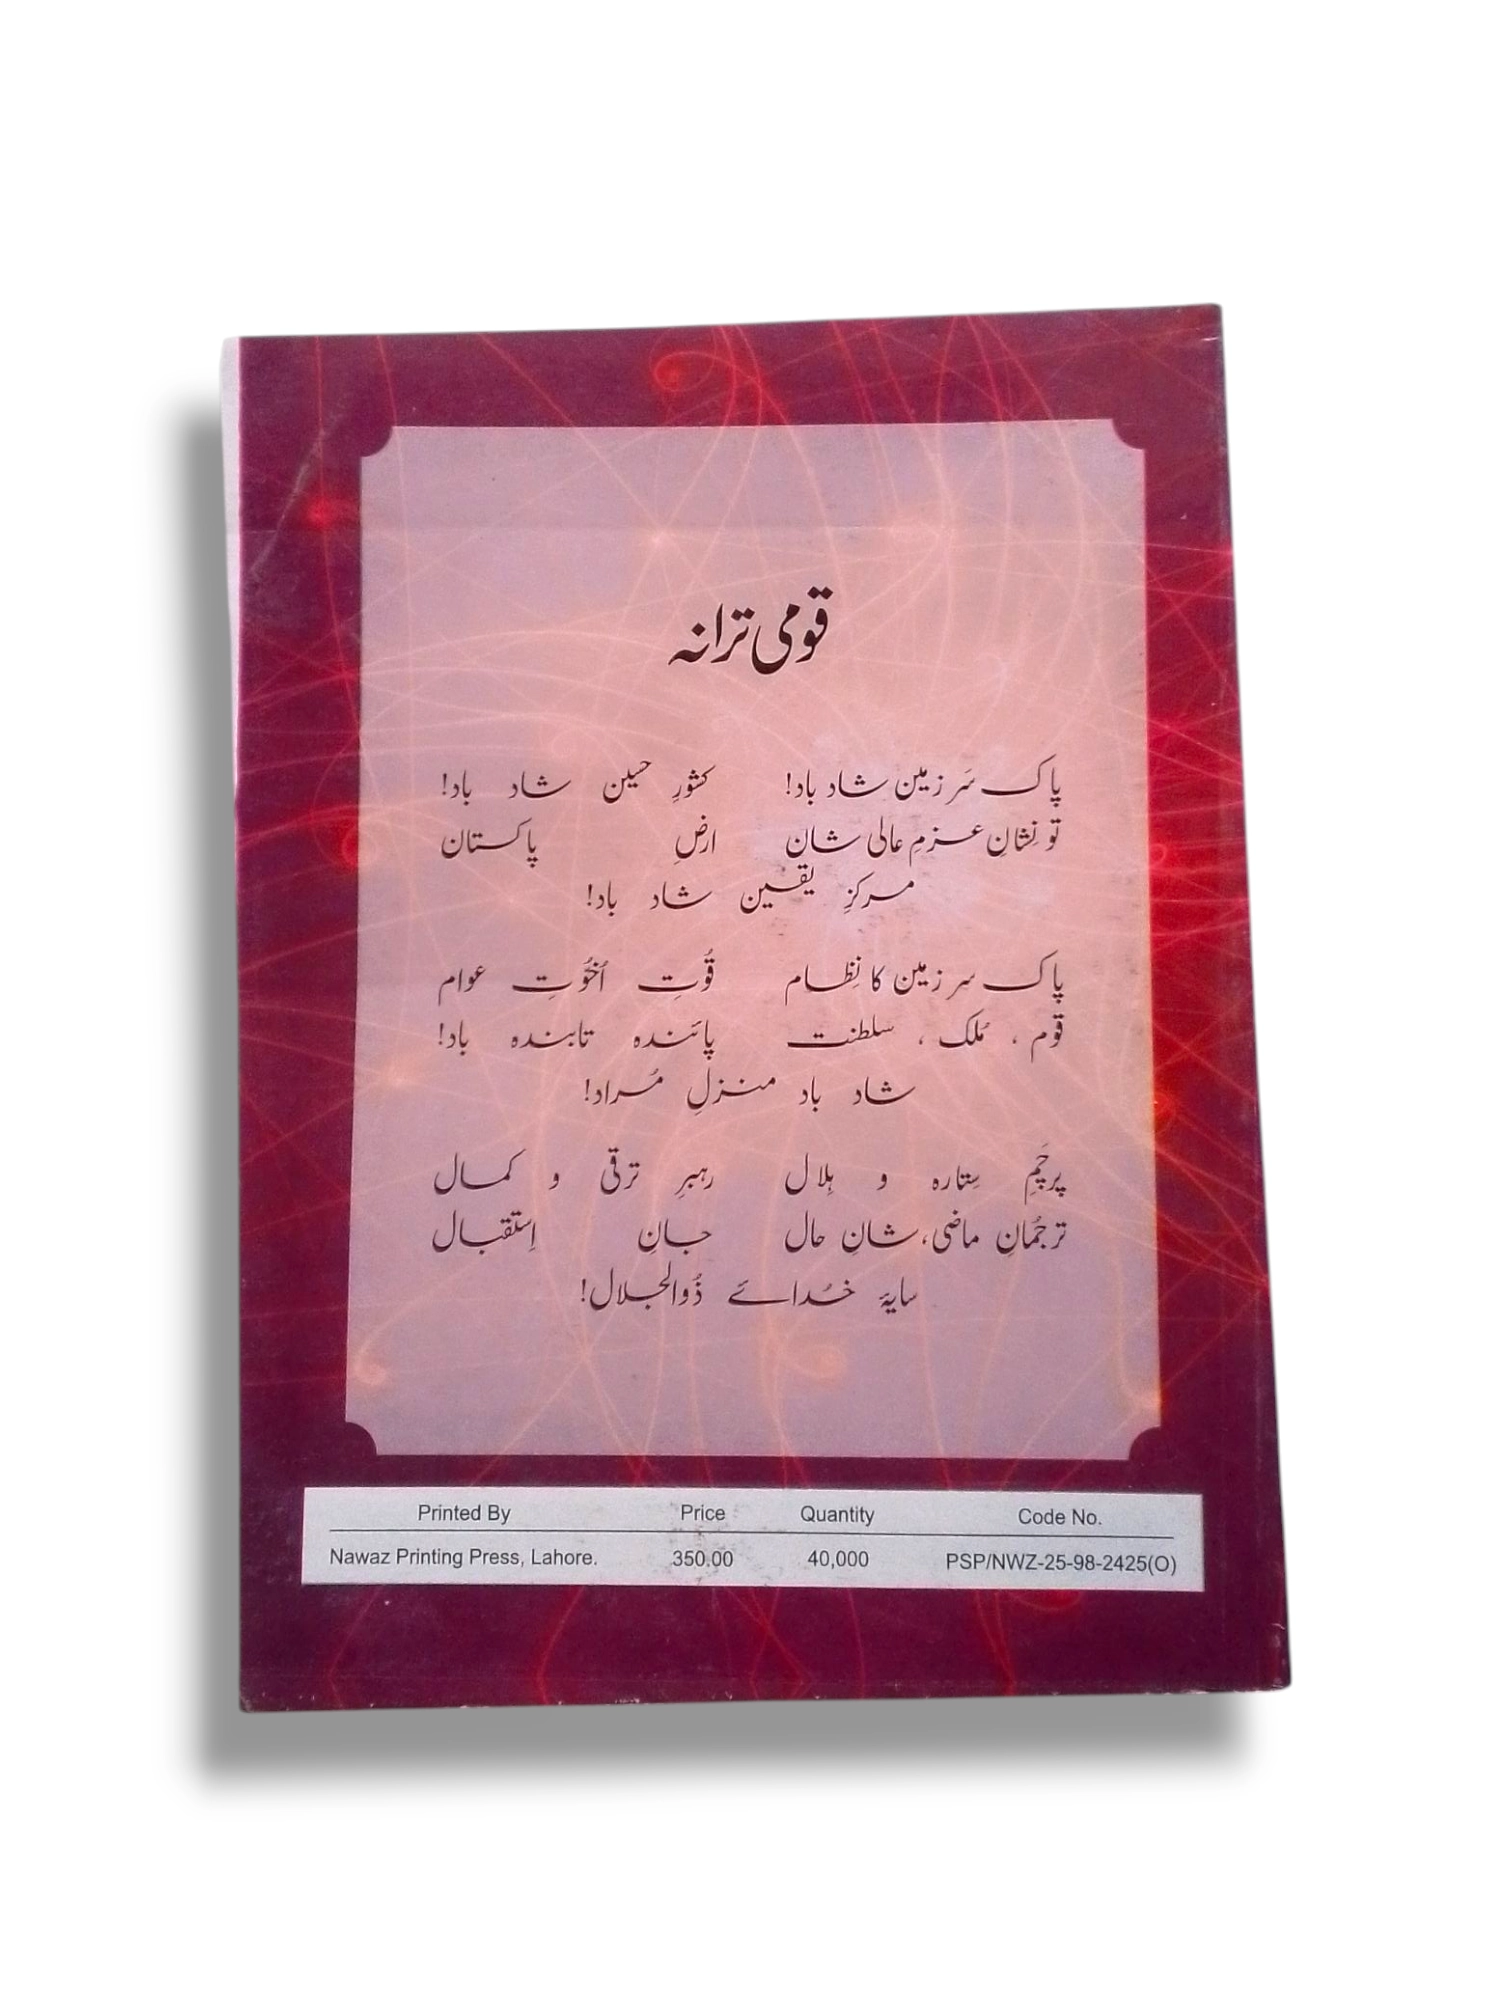 قومی ترانہ
پاک سَر زمین شاد باد! کشورِ حسین شاد باد!
تو نِشانِ عزمِ عالی شان ارضِ پاکستان
مرکزِ یقین شاد باد!
پاک سر زمین کا نِظام قُوتِ اُخُوتِ عوام
قوم ، مُلک ، سلطنت پائندہ تابندہ باد!
شاد باد منزلِ مُراد!
پرچَمِ سِتارہ و ہِلال رہبرِ ترقی و کمال
ترجُمانِ ماضی، شانِ حال جانِ اِستقبال
سایۂ خُدائے ذُوالجلال!
Printed By Price Quantity Code No.
Nawaz Printing Press, Lahore. 350.00 40,000 PSP/NWZ-25-98-2425(O)